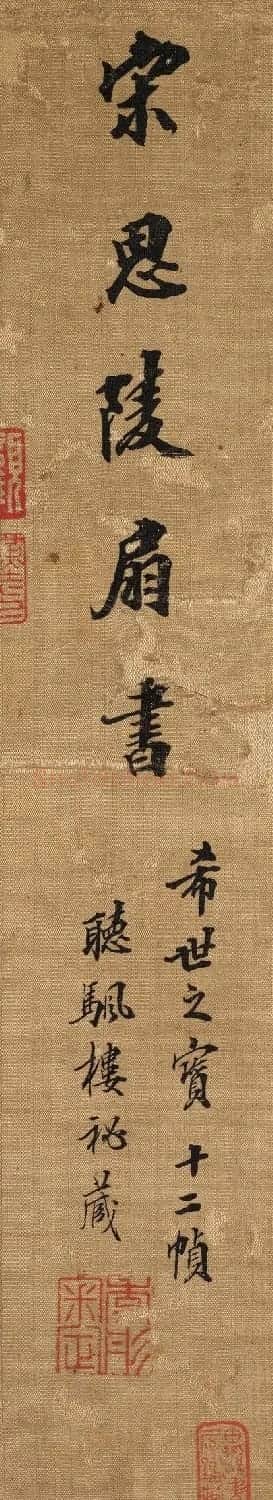 宋思陵扇書
希世之寳十二幀
聽颿樓祕藏